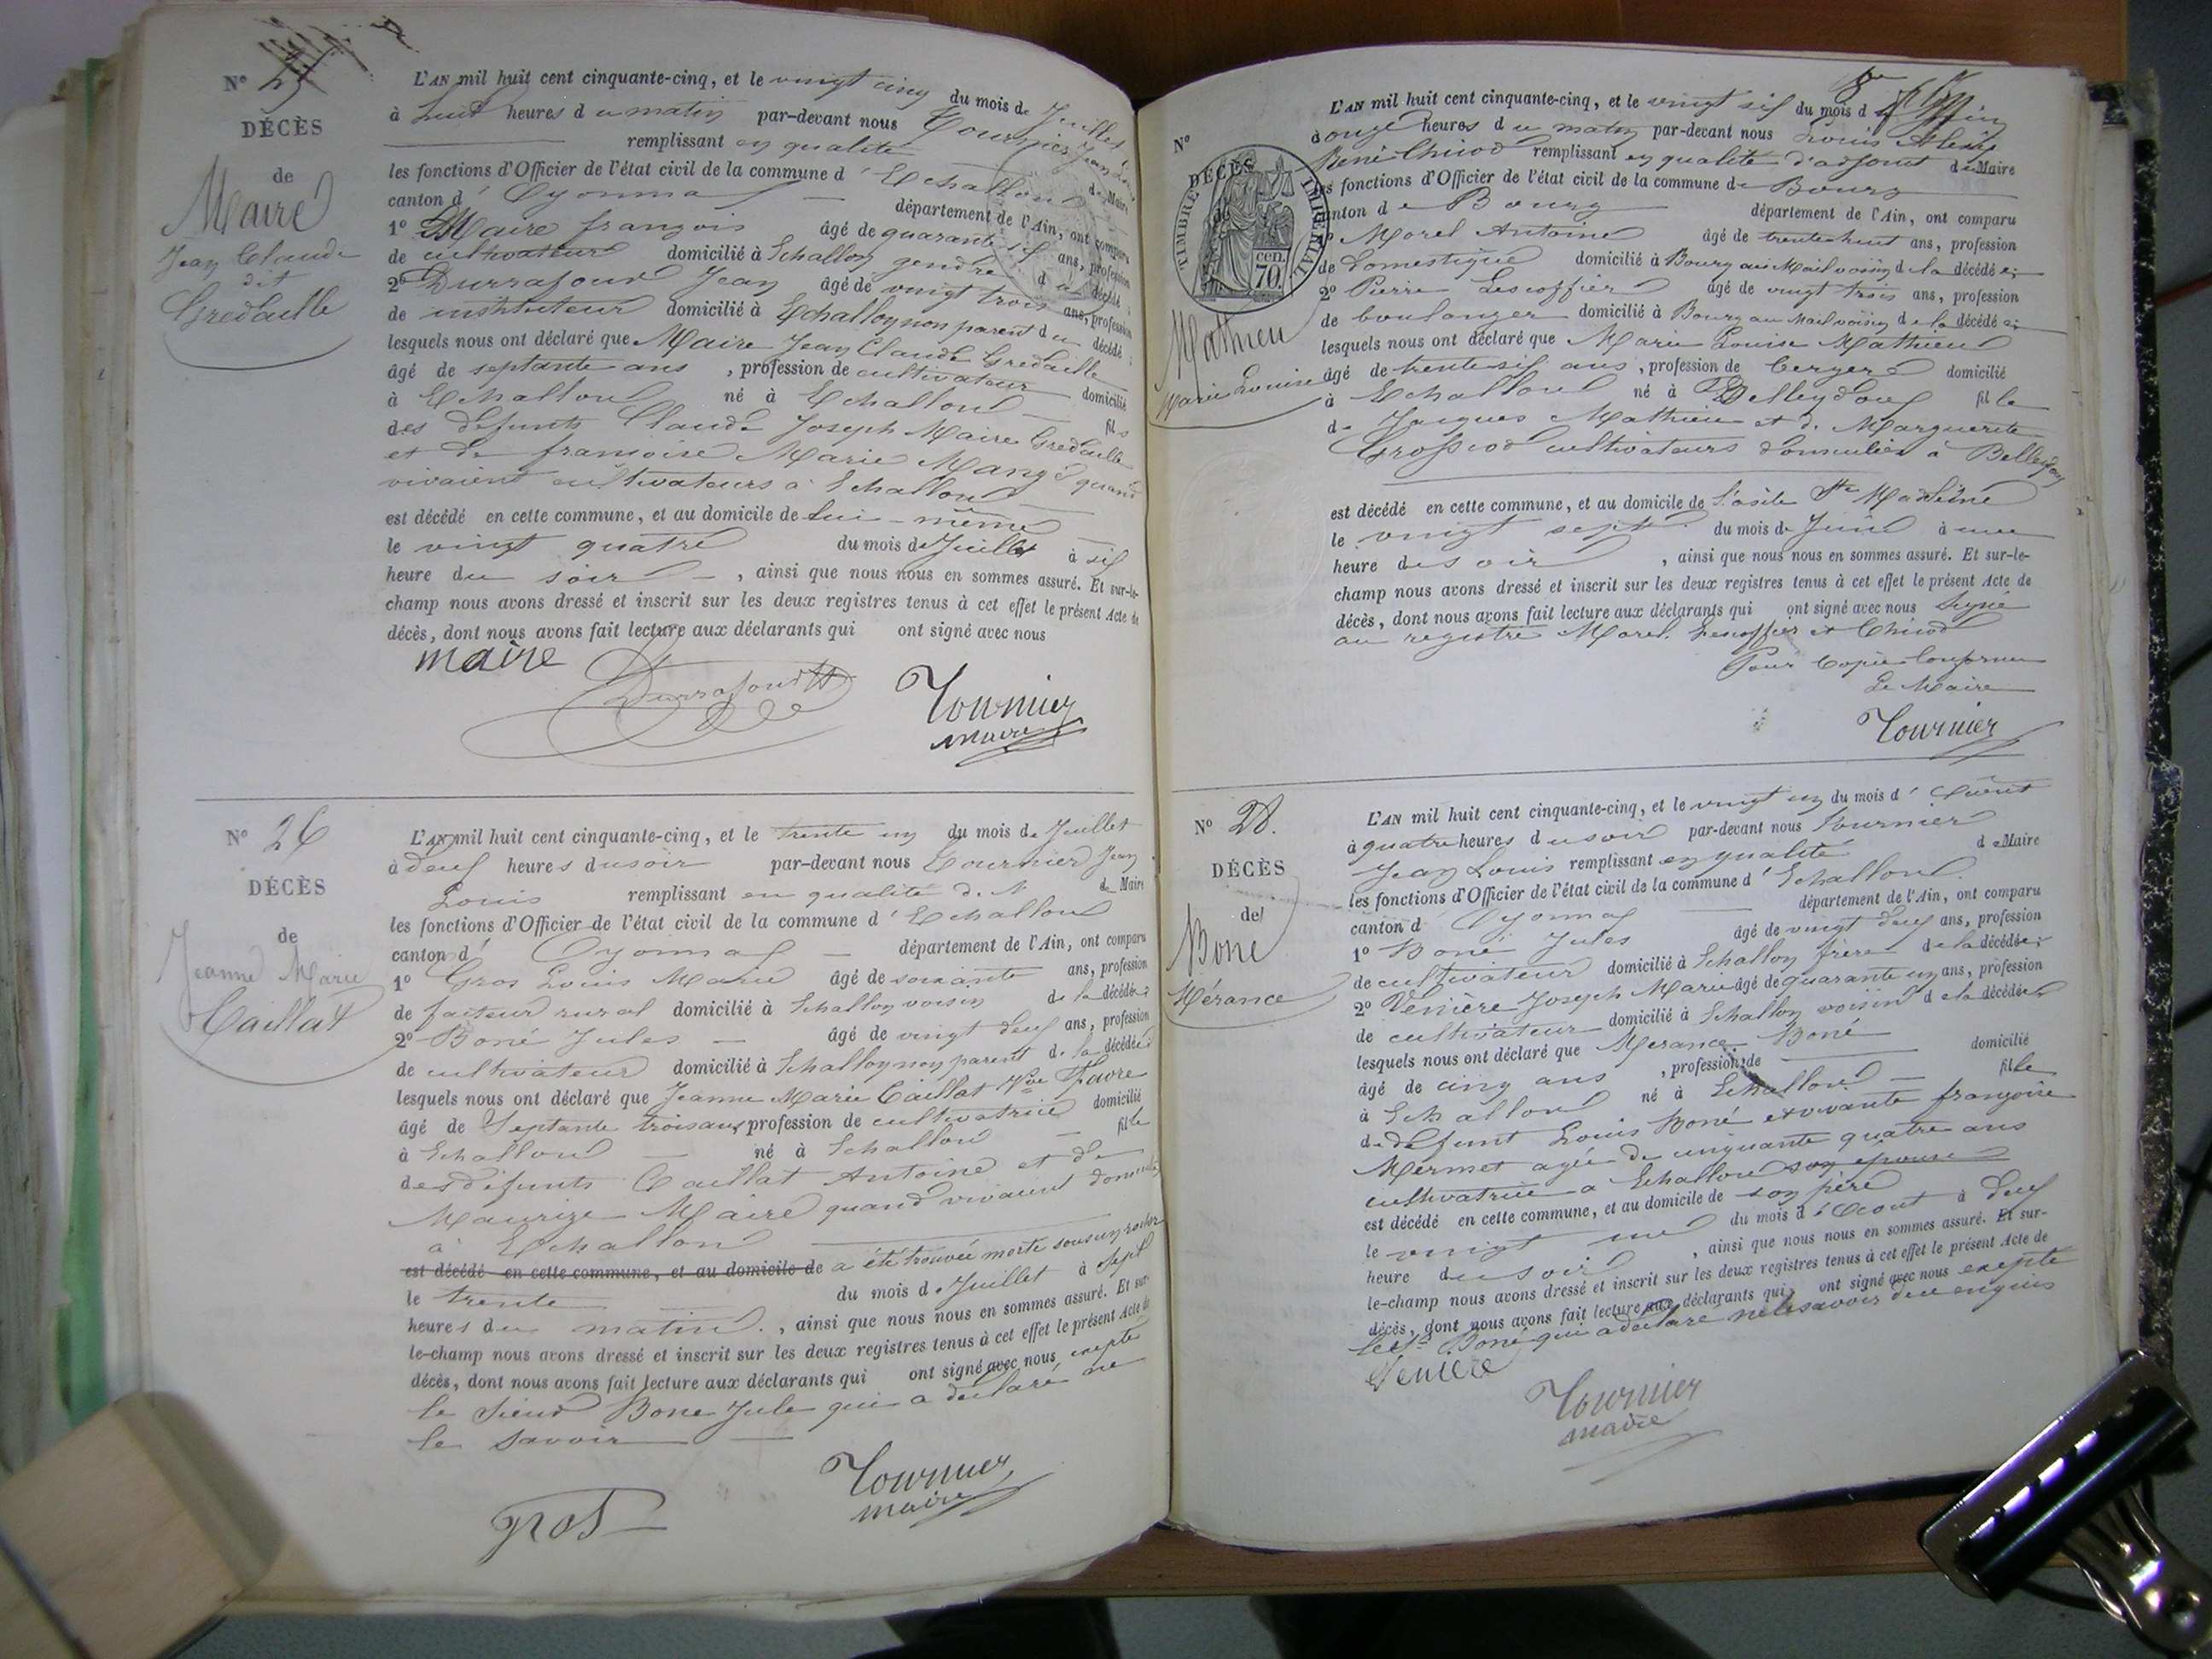 N° 25
DÉCÈS
de
Maire
Jean Claude
dit
Gredaille
L'AN mil huit cent cinquante-cinq, et le vingt cinq du mois de Juillet
à huit heures du matin par-devant nous Tournier Jean Louis
remplissant en qualité de Maire
les fonctions d'Officier de l'état civil de la commune d'Echallon
canton d'Oyonnax département de l'Ain, ont comparu
1° Maire françois âgé de quarante six ans, profession
de cultivateur domicilié à Echallon gendre du décédé;
2° Durrafour Jean âgé de vingt trois ans, profession
de instituteur domicilié à Echallon non parent du décédé;
lesquels nous ont déclaré que Maire Jean Claude Gredaille
âgé de septante ans, profession de cultivateur domicilié
à Echallon né à Echallon fils
des défunts Claude Joseph Maire Gredaille
et de françoise Marie Mange quand
vivaient cultivateurs à Echallon
est décédé en cette commune, et au domicile de lui-même
le vingt quatre du mois de Juillet à six
heure du soir, ainsi que nous nous en sommes assuré. Et sur-le-
champ nous avons dressé et inscrit sur les deux registres tenus à cet effet le présent Acte de
décès, dont nous avons fait lecture aux déclarants qui ont signé avec nous
maire
Durrafour
Tournier
maire
N° 26
DÉCÈS
de
Jeanne Marie
Caillat
L'AN mil huit cent cinquante-cinq, et le trente un du mois de Juillet
à deux heures du soir par-devant nous Tournier Jean
Louis remplissant en qualité de Maire
les fonctions d'Officier de l'état civil de la commune d'Echallon
canton d'Oyonnax département de l'Ain, ont comparu
1° Gros Louis Marie âgé de soixante ans, profession
de facteur rural domicilié à Echallon voisin de la décédée;
2° Boné Jules âgé de vingt deux ans, profession
de cultivateur domicilié à Echallon non parent de la décédée;
lesquels nous ont déclaré que Jeanne Marie Caillat Vve Favre
âgé de Septante trois ans, profession de cultivatrice domicilié
à Echallon né à Echallon fille
des défunts Caillat Antoine et de
Maurize Maire quand vivaient domiciliés
à Echallon
est décédé en cette commune, et au domicile de a été trouvée morte sous un rocher
le trente du mois de Juillet à sept
heures du matin, ainsi que nous nous en sommes assuré. Et sur-
le-champ nous avons dressé et inscrit sur les deux registres tenus à cet effet le présent Acte de
décès, dont nous avons fait lecture aux déclarants qui ont signé avec nous exepté
le sieur Bone Jule qui a déclaré ne
le savoir
gros
Tournier
maire
N°
DÉCÈS
de
TIMBRE IMPÉRIAL
70 cen.
Mathieu
Marie Louise
L'AN mil huit cent cinquante-cinq, et le vingt sif du mois d
à onze heures du matin par-devant nous
René Chicod remplissant en qualité d'adjoint du Maire
les fonctions d'Officier de l'état civil de la commune de Bourg
canton de Bourg département de l'Ain, ont comparu
1° Morel Antoine âgé de trente huit ans, profession
de Domestique domicilié à Bourg au Mail voisin de la décédée;
2° Pierre Lescoffier âgé de vingt trois ans, profession
de boulanger domicilié à Bourg au Mail voisin de la décédée;
lesquels nous ont déclaré que Marie Louise Mathieu
âgé de trente six ans, profession de bergere domicilié
à Echallon né à Belleydoux fille
de Jacques Mathieu et de Marguerite
Grossiod cultivateurs domiciliés à Belleydoux
est décédé en cette commune, et au domicile de l'asile Ste Madeleine
le vingt sept du mois de Juin à une
heure du soir, ainsi que nous nous en sommes assuré. Et sur-le-
champ nous avons dressé et inscrit sur les deux registres tenus à cet effet le présent Acte de
décès, dont nous avons fait lecture aux déclarants qui ont signé avec nous Signé
au registre Morel, Lescoffier et Chicod
Pour Copie Conforme
Le Maire
Tournier
N° 28.
DÉCÈS
de
Bone
Mérance
L'AN mil huit cent cinquante-cinq, et le vingt un du mois d'Août
à quatre heures du soir par-devant nous Tournier
Jean Louis remplissant en qualité de Maire
les fonctions d'Officier de l'état civil de la commune d'Echallon.
canton d'Oyonnax département de l'Ain, ont comparu
1° Boné Jules âgé de vingt deux ans, profession
de cultivateur domicilié à Echallon frère de la décédée;
2° Venière Joseph Marie âgé de quarante un ans, profession
de cultivateur domicilié à Echallon voisin de la décédée
lesquels nous ont déclaré que Merance Boné
âgé de cinq ans, profession de domicilié
à Echallon né à Echallon fille
de défunt Louis Boné et vivante françoise
Mermet agée de cinquante quatre ans
cultivatrice a Echallon son epouse
est décédé en cette commune, et au domicile de son père
le vingt un du mois d'Aout à deux
heure du soir, ainsi que nous nous en sommes assuré. Et sur-
le-champ nous avons dressé et inscrit sur les deux registres tenus à cet effet le présent Acte de
décès, dont nous avons fait lecture aux déclarants qui ont signé avec nous exepté
le Sr Boné qui a déclaré ne le savoir de ce enquis
Tournier
maire